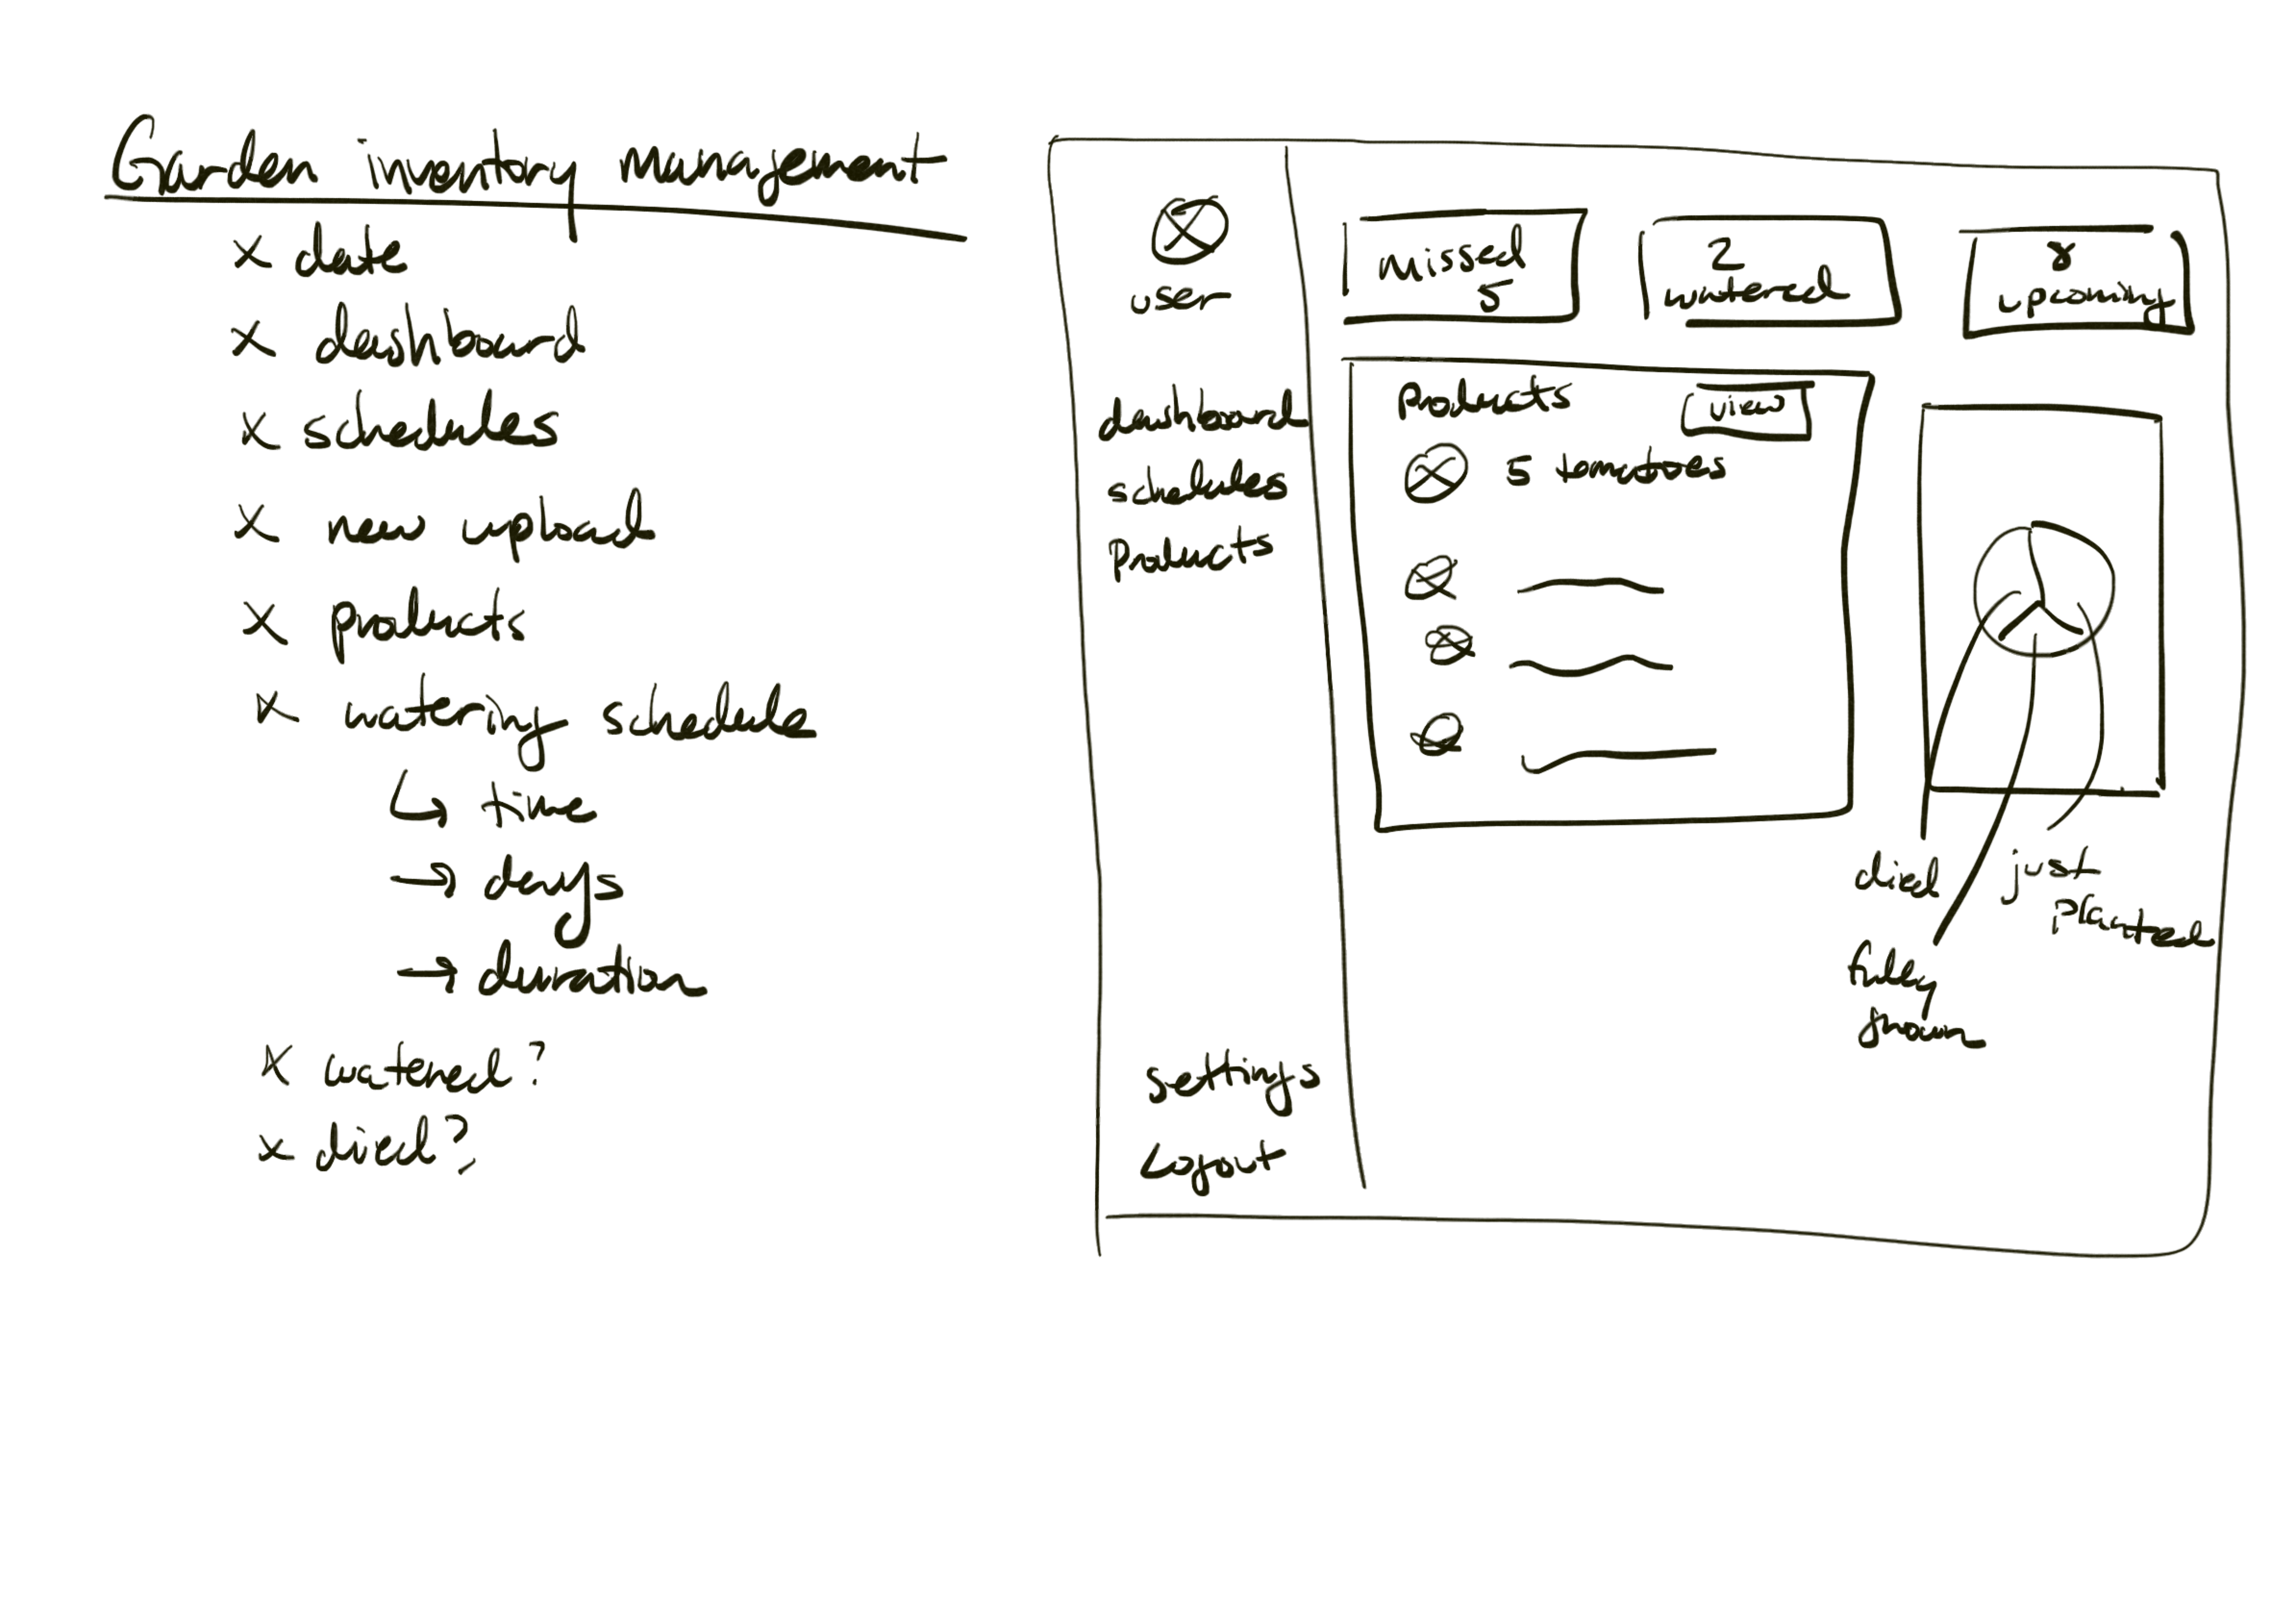 Garden inventory management
x date
x dashboard
x schedules
x new upload
x products
x watering schedule
↳ time
→ days
→ duration
x watered?
x died?
user
dashboard
schedules
Products
settings
Logout
missed
5
2
watered
8
upcoming
Products
view
5 tomatoes
died
just
planted
fully
grown